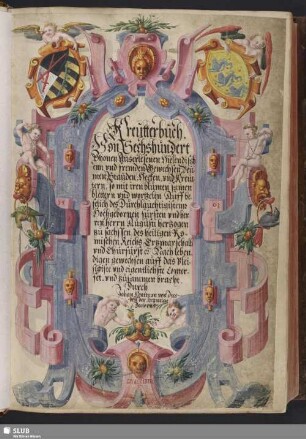 Kreutterbuch.
Von Sechshundert
Schönen Auserlesenen Einlendisch
enn und frembden Gewechsen Beu
men Stauden Hecken und Kreu
tern, so mit iren blumen samen
bletter und wurtzeln Auff be
felich des Durchlauchtigistenn
Hochgebornen fürsten und her
ren herrn Augusti hertzogen
zu sachssen des heiligen Rö
mischen Reichs Ertzmarschalch
und Churfürst Nach leben
digen gewechsen auffs das flei
sigiste und eigentlichste Conter
fet, und zusammen bracht
Durch
SLUB
Wir führen Wissen.